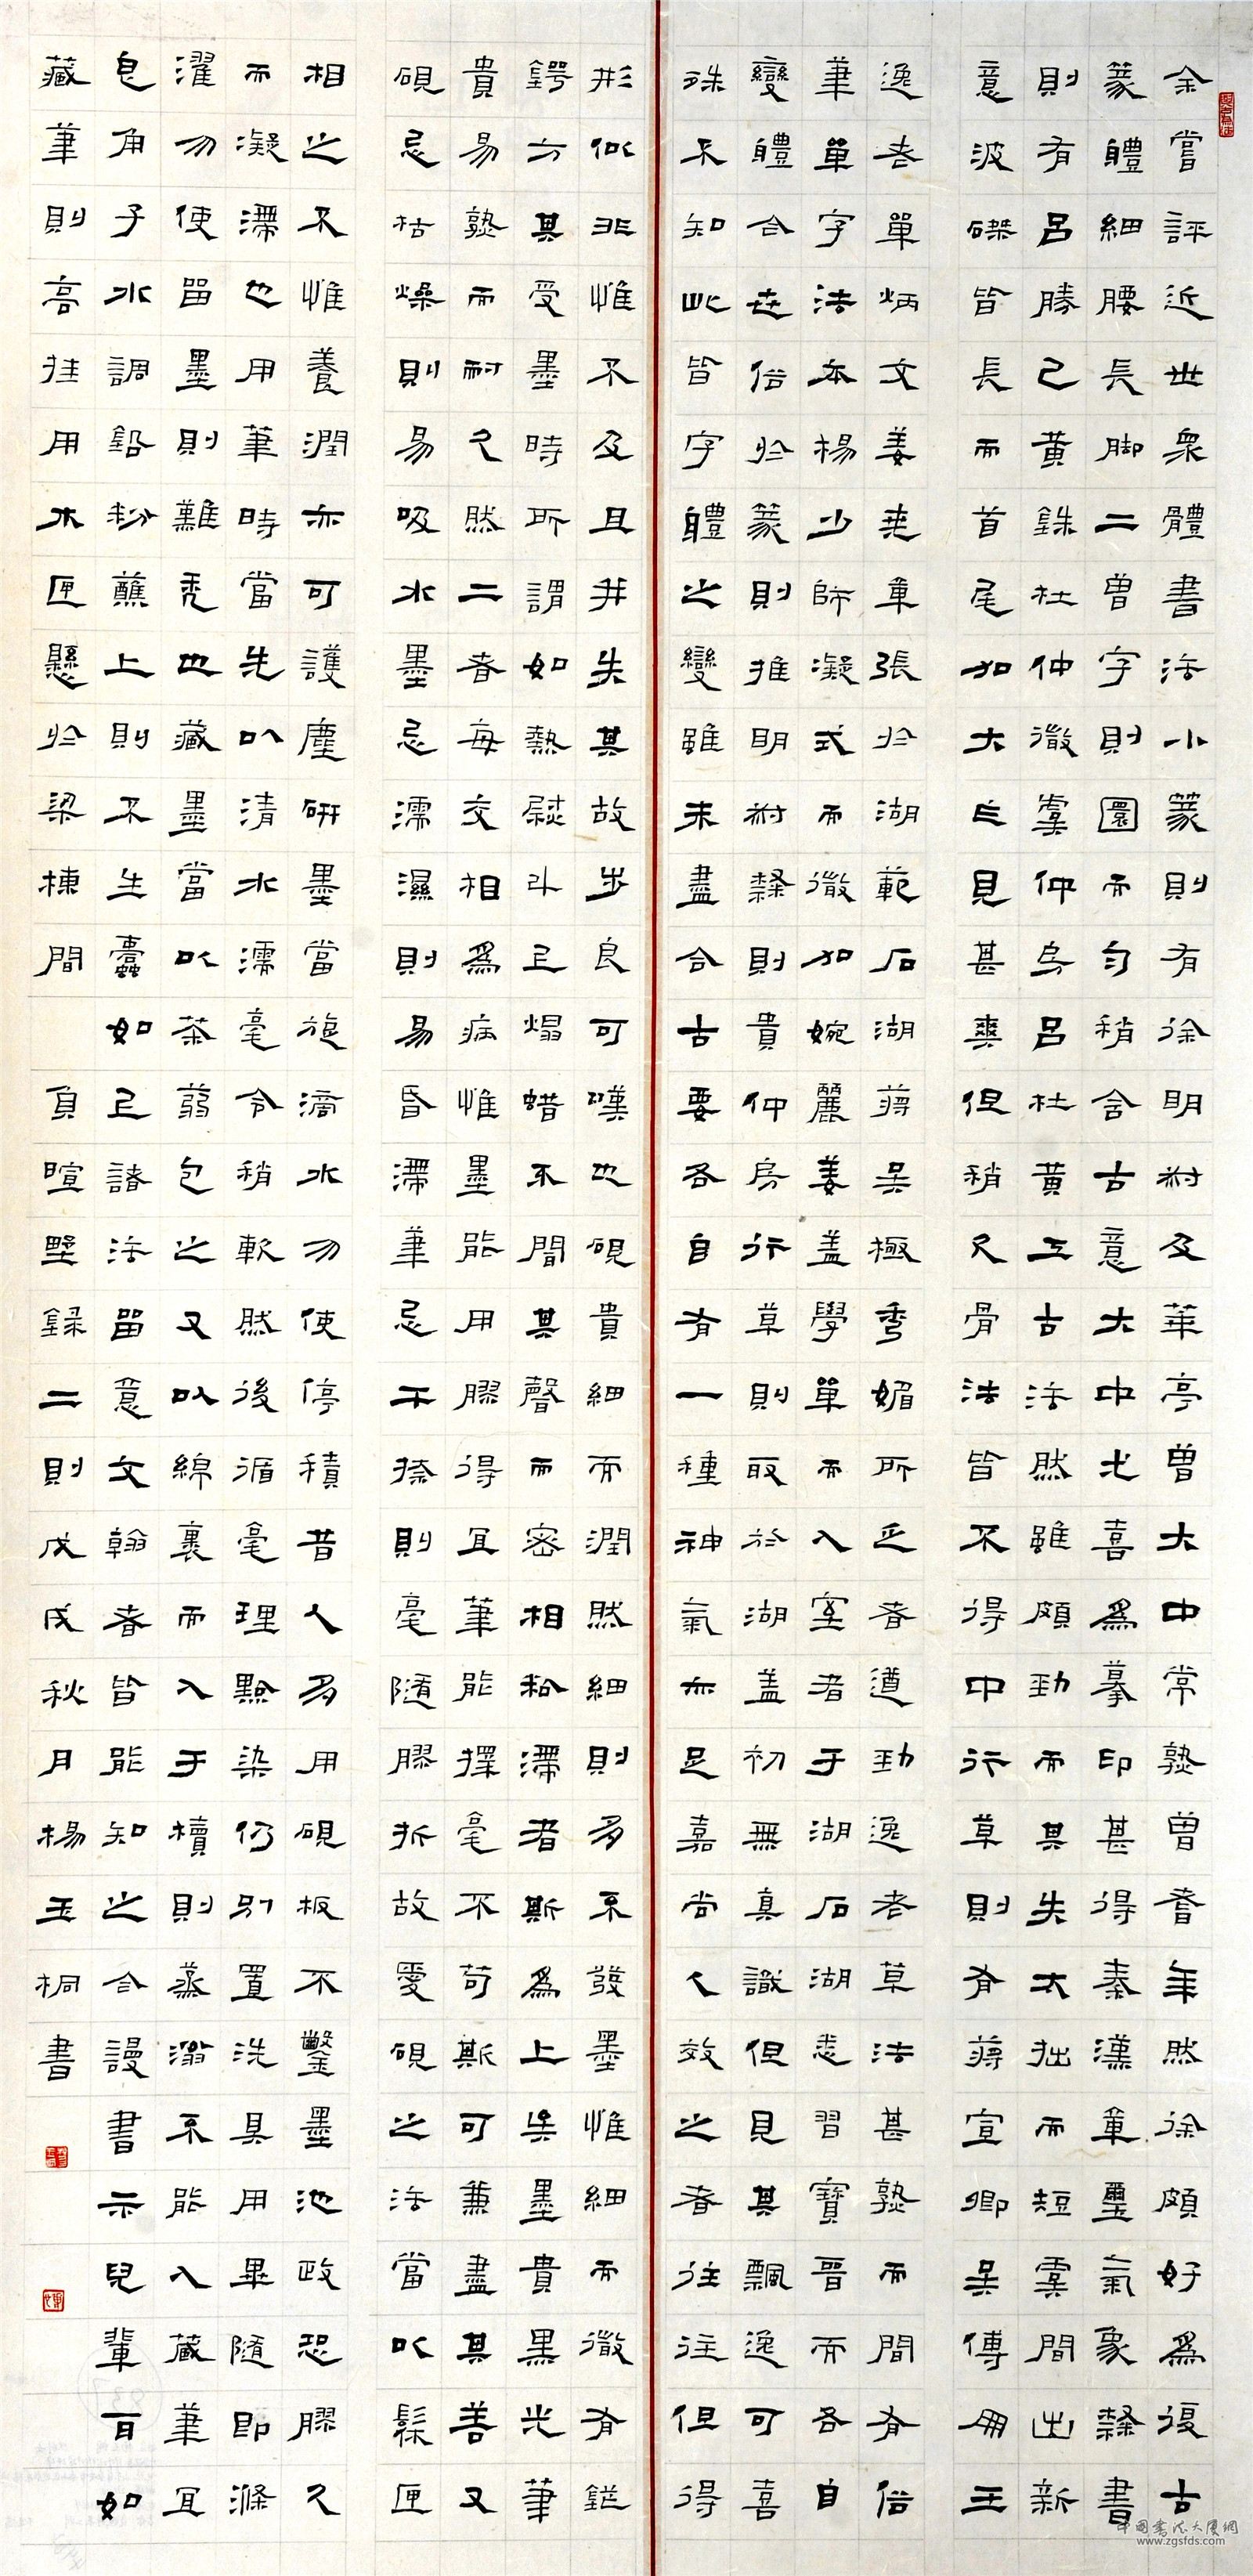 余嘗評近世衆體書法小篆則有徐明叔及華亭曾大中常熟曾耆年然徐頗好為復古
篆體細腰長脚二曾字則圓而勻稍含古意大中尤喜為摹印甚得秦漢章璽氣象隸書
則有呂勝己黄銖杜仲微虞仲房呂杜黄工古法然雖頗勁而其失太拙而短虞間出新
意波磔皆長而首尾加大乍見甚爽但稍欠骨法皆不得中行草則有蒋宣卿吴傅朋王
逸老單炳文姜尭章張於湖範石湖蒋吴極秀媚所乏者遒勁逸老草法甚熟而間有俗
筆單字法本楊少師凝式而微加婉麗姜盖學單而入室者于湖石湖悉習寶晋而各自
變體合世俗於篆則推明叔隸則貴仲房行草則取於湖盖初無真識但見其飄逸可喜
殊不知此皆字體之變雖未盡合古要各自有一種神氣亦足嘉尚人效之者往往但得
形似非惟不及且并失其故步良可嘆也硯貴細而潤然細則多不發墨惟細而微有鋩
鍔方其受墨時所謂如熱熨斗上焗蜡不聞其聲而密相粘滯者斯為上矣墨貴黑光筆
貴易熟而耐久然二者每交相為病惟墨能用膠得宜筆能擇毫不苟斯可兼盡其善又
硯忌枯燥則易吸水墨忌濡濕則易昏滯筆忌干捺則毫隨膠折故愛硯之法當以髹匣
相之不惟養潤亦可護塵研墨當旋滴水勿使停積昔人多用硯板不鑿墨池政恐膠久
而凝滯也用筆時當先以清水濡毫令稍軟然後循毫理點染仍别置洗具用畢隨即滌
濯勿使留墨則難秃也藏墨當以茶蒻包之又以綿裹而入于櫝則蒸溽不能入藏筆宜
皂角子水調鉛粉蘸上則不生蠹如已諸法留意文翰者皆能知之今謾書示兒輩百如
藏筆則高往用木匣懸於梁棟間 負暄野録二則戊戌秋月楊玉桐書
中国書法大廈網
www.zgsfds.com